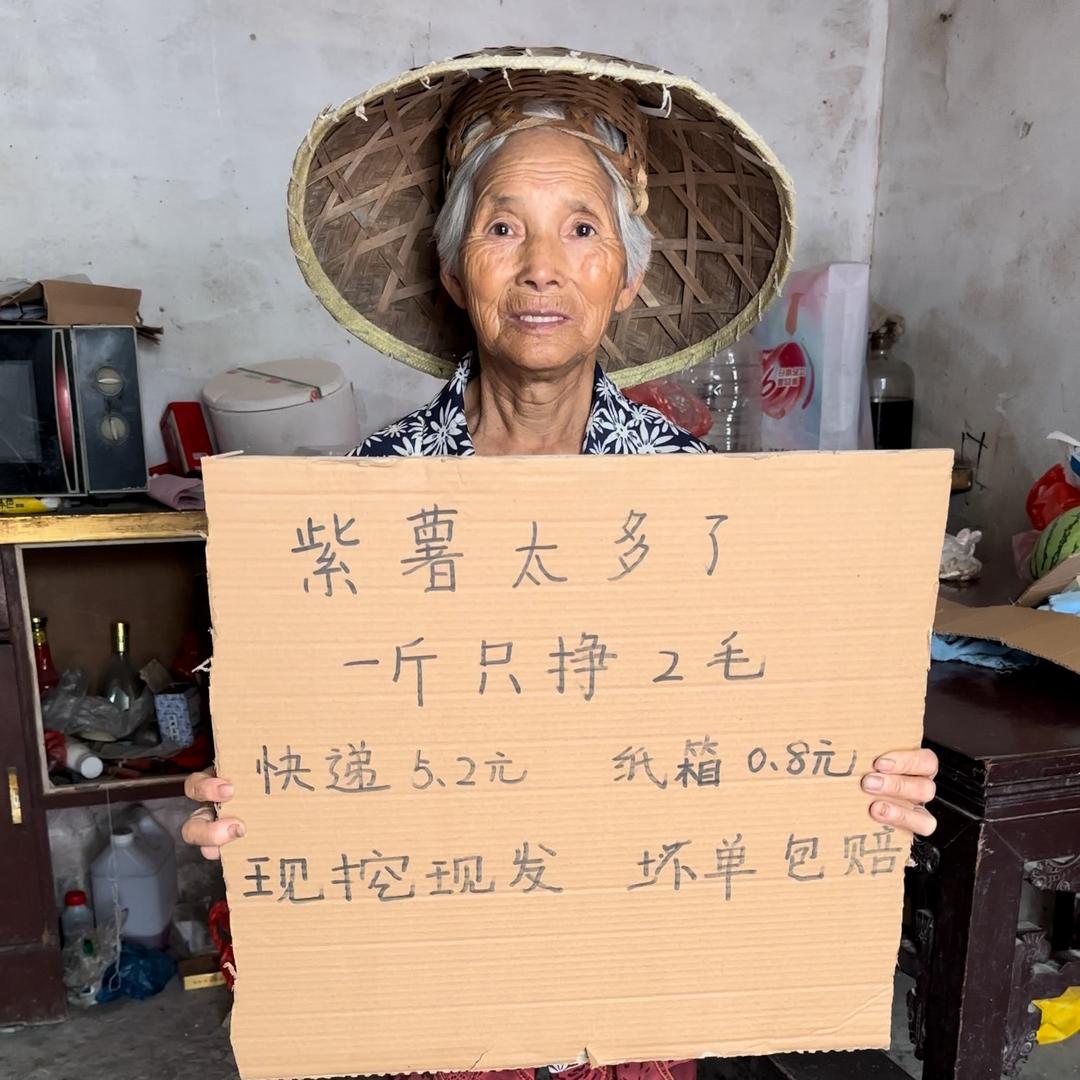 紫薯太多了
一斤只挣2毛
快递5.2元 纸箱0.8元
现挖现发 坏单包赔